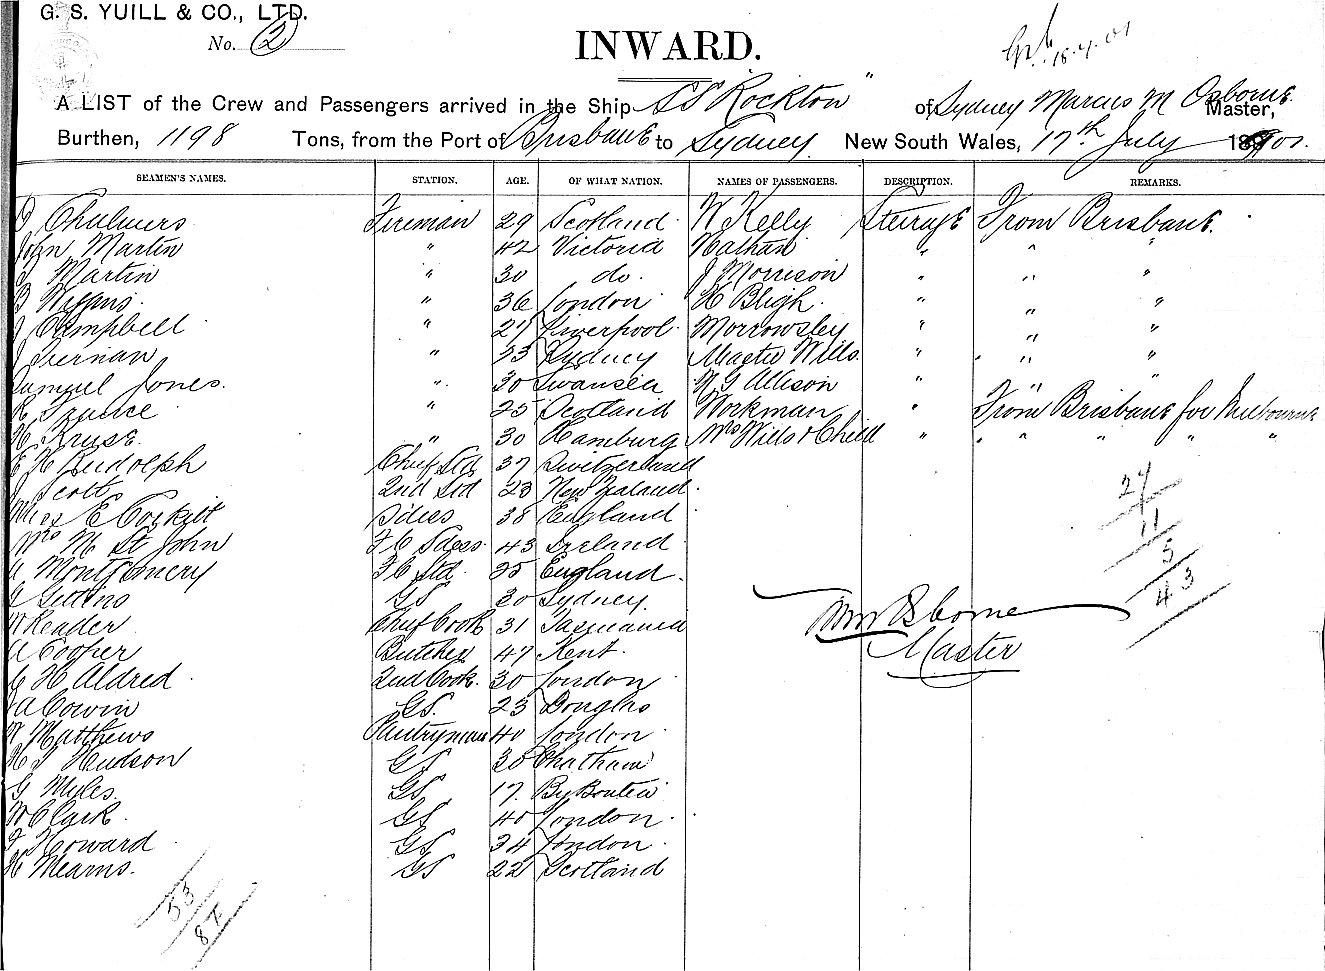 G. S. YUILL & CO., LTD.
No. 2
INWARD.
18.7.01
A LIST of the Crew and Passengers arrived in the Ship SS "Rockton" of Sydney Marcus M Osborne Master,
Burthen, 1198 Tons, from the Port of Brisbane to Sydney New South Wales, 17th July 1901.
SEAMEN'S NAMES. STATION. AGE. OF WHAT NATION. NAMES OF PASSENGERS. DESCRIPTION. REMARKS.
Chalmers Fireman 29 Scotland W Kelly Steerage From Brisbane.
John Martin " 42 Victoria Nathan " " "
Martin " 30 do. J Morrison " " "
Wiggins " 36 London H Bligh " " "
J Campbell " 27 Liverpool Morrowsley " " "
J Tiernan " 23 Sydney Master Wills " " "
Samuel Jones " 30 Swansea W G Allison " " "
R " 25 Scotland Workman " From Brisbane for Melbourne
H Kruse " 30 Hamburg Mrs Wills & Child " " " " " "
E H Rudolph Chief Std 37 Switzerland
J Scott 2nd Std 23 New Zealand
Miss E Corkill Sdess 38 England
Mrs M St John F C Sdess 43 Ireland
A Montgomery F C Std 25 England
Gittins GS 30 Sydney
W Reader Chief Cook 31 Tasmania
A Cooper Butcher 47 Kent
C H Aldred 2nd Cook 30 London
A Cowin GS. 23 Douglas
W Matthews Pantryman 40 London
H J Hudson GS 30 Chatham
G Myles GS 17
W Clark GS 40 London
F Howard GS 34 London
H Mearns GS 22 Scotland
24
11
5
43
M M Osborne
Master
53
87